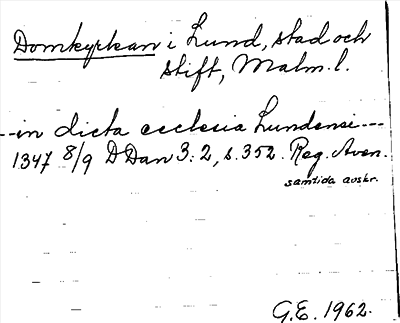 Domkyrkan i Lund, stad och
stift, Malm. l.
--in dicta ecclesia Lundensi---
1347 8/9 DDan 3:2, s. 352. Reg. Aven.
samtida avskr.
G.E. 1962.